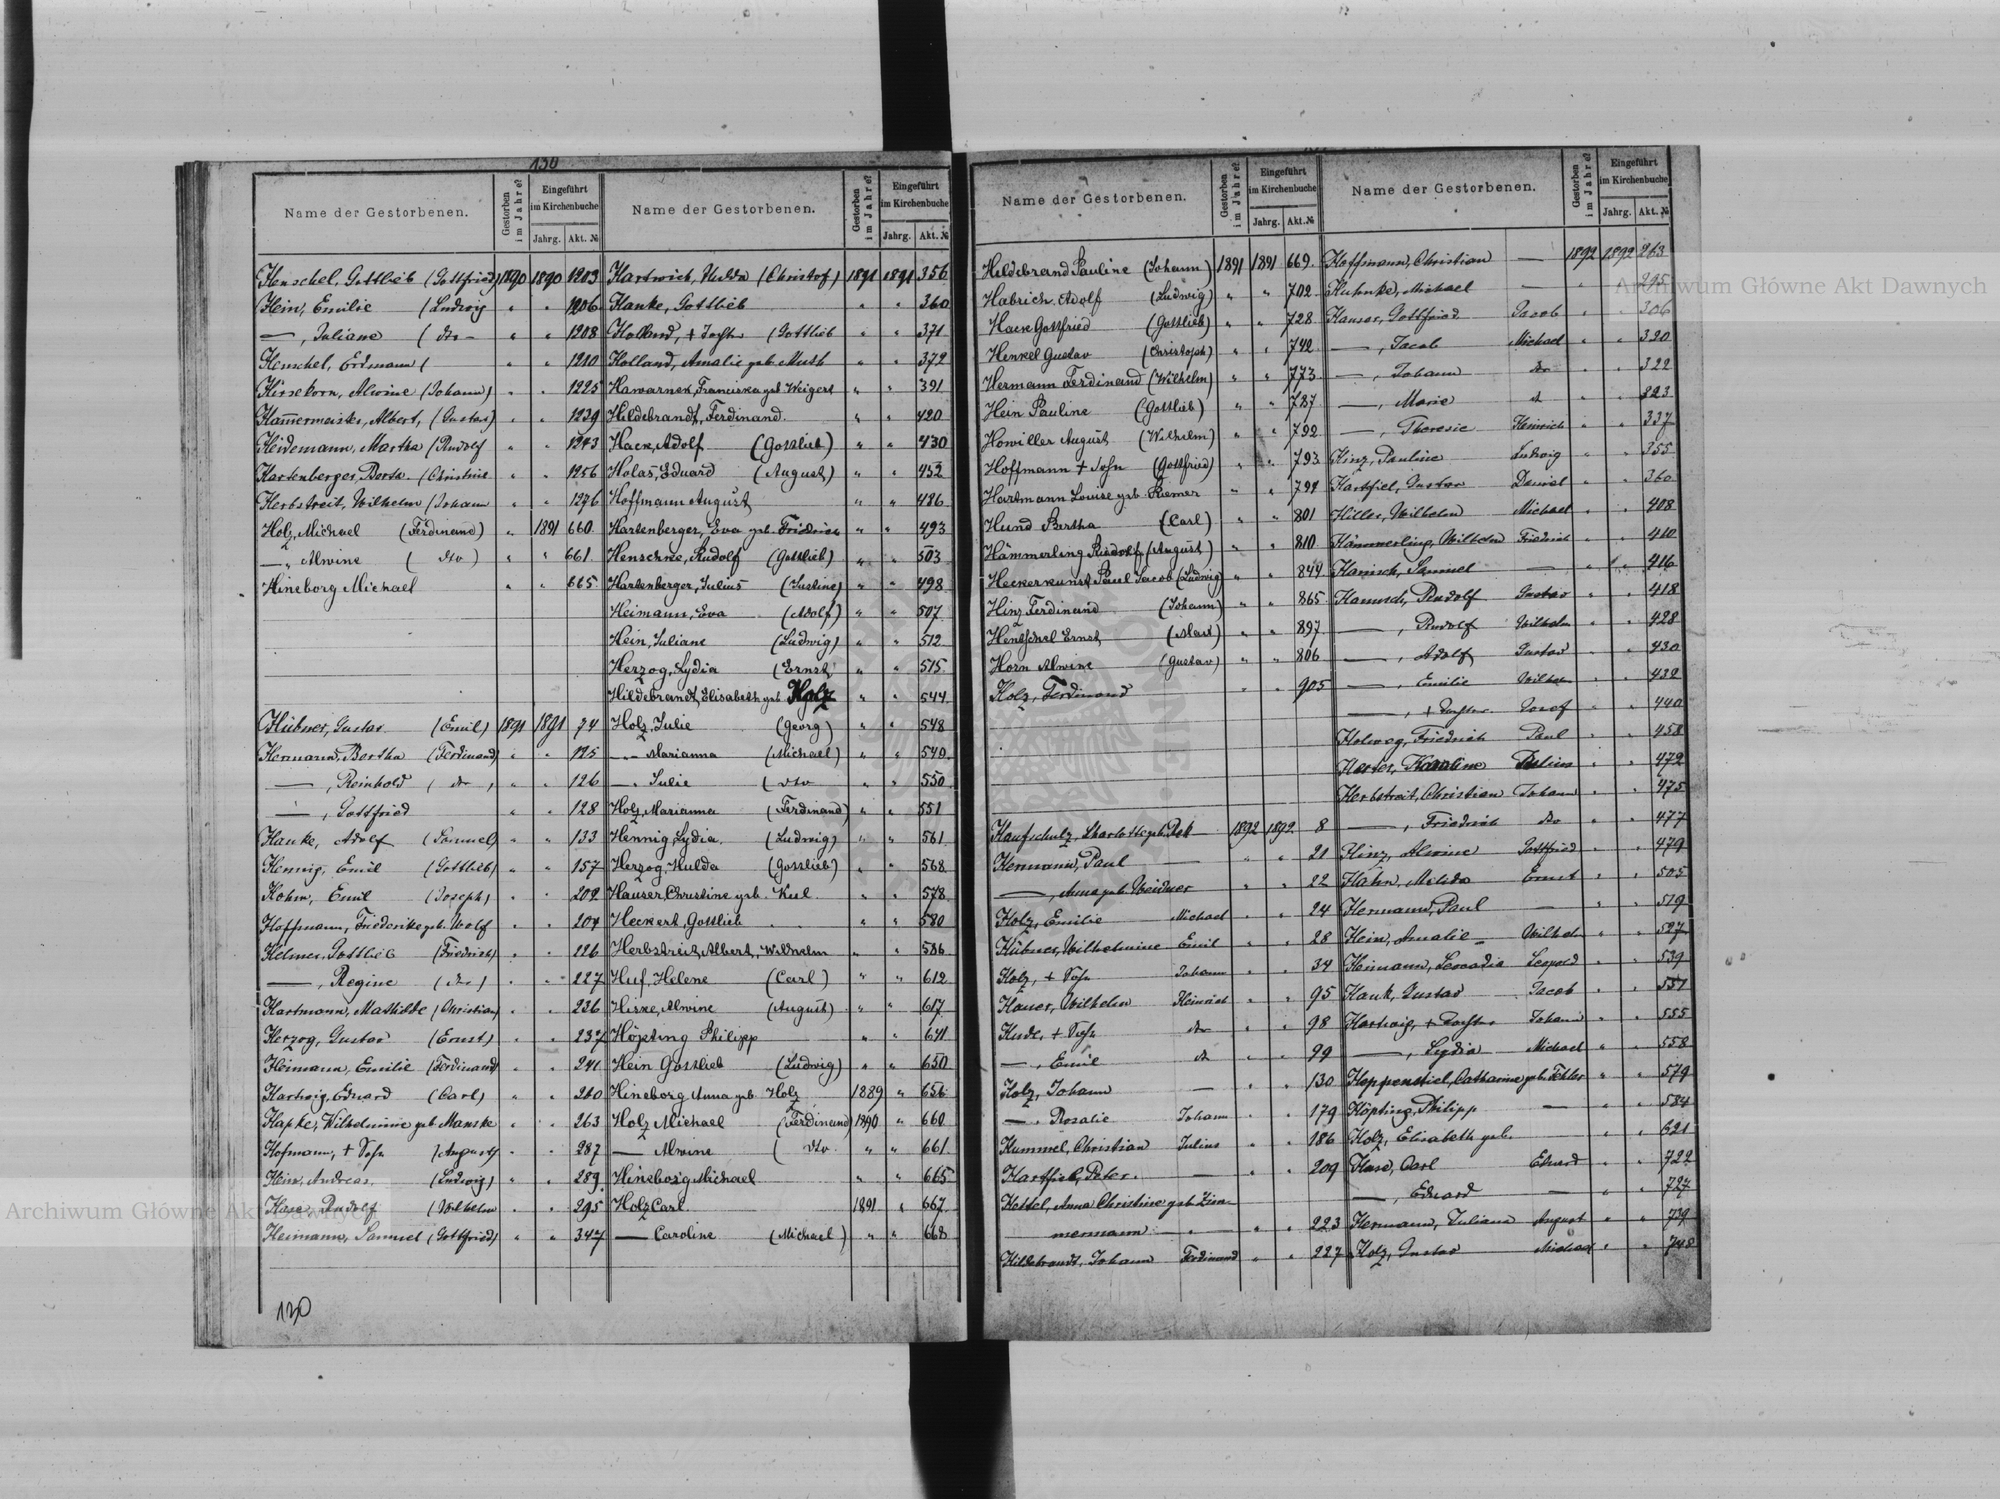 130
Name der Gestorbenen.
Gestorben im Jahre?
Eingeführt im Kirchenbuche
Jahrg. Akt. №
Henschel, Gottlieb (Gottfried) 1890 1890 1203
Hein, Emilie (Ludwig " " 1206
—, Juliane ( dto - " " 1208
Henschel, Erdmann ( " " 1210
Hirsekorn, Alwine (Johann) " " 1225
Hammermeister, Albert, (Gustav) " " 1239
Heidemann, Martha (Rudolf " " 1243
Hartenberger, Berta (Christine " " 1256
Herbstreit, Wilhelm (Johann " " 1276
Holz, Michael (Ferdinand) " 1891 660
— „ Alwine ( dto ) " " 661
Hineborg Michael " " 665
Hübner, Gustav (Emil) 1891 1891 74
Hermann, Bertha (Ferdinand) " " 125
—, Reinhold ( dto ) " " 126
—, Gottfried " " 128
Hanke, Adolf (Samuel) " " 133
Hennig, Emil (Gottlieb) " " 157
Hohm, Emil (Joseph) " " 202
Hoffmann, Friederike geb. Wolf " " 204
Helmer, Gottlieb (Friedrich) " " 226
—, Regine ( dto ) " " 227
Hartmann, Mathilde (Christian) " " 236
Herzog, Gustav (Ernst) " " 237
Heimann, Emilie (Ferdinand) " " 241
Hartwig, Eduard (Carl) " " 260
Hapke, Wilhelmine geb. Manske " " 263
Hofmann, + Sohn (August) " " 287
Hein, Andreas, (Ludwig) " " 289
Hase, Rudolf (Wilhelm " " 295
Heimann, Samuel (Gottfried) " " 347
130
Name der Gestorbenen.
Gestorben im Jahre?
Eingeführt im Kirchenbuche
Jahrg. Akt. №
Hartwich, Hulda (Christof) 1891 1891 356
Hanke, Gottlieb " " 360
Holland, + Tochter (Gottlieb " " 371
Holland, Amalie geb. Muth " " 372
Hawarnek, Franciska geb Weigert " " 391
Hildebrandt, Ferdinand. " " 420
Hack, Adolf (Gottlieb) " " 430
Holas, Eduard (August) " " 452
Hoffmann August " " 486
Hartenberger, Eva geb. Friedrich " " 493
Henschke, Rudolf (Gottlieb) " " 503
Hartenberger, Julius (Justine) " " 498
Heimann, Eva (Adolf) " " 507
Hein, Juliane (Ludwig) " " 512
Herzog, Lydia (Ernst) " " 515
Hildebrandt, Elisabeth geb. Holz " " 544
Holz, Julie (Georg) " " 548
—„— Marianna (Michael) " " 549
—„ Julie ( dto " " 550
Holz, Marianna (Ferdinand) " " 551
Hennig, Lydia. (Ludwig) " " 561
Herzog, Hulda (Gottlieb) " " 568
Hauser, Christine geb. Kul " " 578
Heckert, Gottlieb " " 580
Herbstreit, Albert, Wilhelm " " 586
Huf, Helene (Carl) " " 612
Hirke, Alwine (August) " " 617
Höpting Philipp " " 641
Hein Gottlieb (Ludwig) " " 650
Hineborg Anna geb. Holz 1889 " 656
Holz Michael (Ferdinand) 1890 " 660
— Alwine ( dto. " " 661
Hineborg Michael " " 665
Holz Carl 1891 " 667
— Caroline (Michael) " " 668
Name der Gestorbenen.
Gestorben im Jahre?
Eingeführt im Kirchenbuche
Jahrg. Akt. №
Hildebrand Pauline (Johann) 1891 1891 669
Habrich Adolf (Ludwig) " " 702
Hack Gottfried (Gottlieb) " " 728
Henkel Gustav (Christoph) " " 742
Hermann Ferdinand (Wilhelm) " " 773
Hein Pauline (Gottlieb) " " 787
Howiller August (Wilhelm) " " 792
Hoffmann + Sohn (Gottfried) " " 793
Hartmann Louise geb. Riemer " " 799
Hund Bertha (Carl) " " 801
Hämmerling Rudolf (August) " " 810
Heckerkunst Paul Jacob (Ludwig) " " 844
Hinz Ferdinand (Johann) " " 865
Hentschel Ernst " " 897
Horn Alwine (Gustav) " " 806
Holz, Ferdinand " " 905
Haufschulz, Charlotte geb. 1892 1892 8
Hermann, Paul — " " 21
—, Anna geb. Weidner " " 22
Holz, Emilie Michael " " 24
Hübner, Wilhelmine Emil " " 28
Holz, + Sohn Johann " " 34
Hauer, Wilhelm Heinrich " " 95
Hude, + Sohn dto " " 98
—, Emil dto " " 99
Holz, Johann — " " 130
—, Rosalie Johann " " 179
Hummel, Christian Julius " " 186
Hartfiel, Peter. — " " 209
Hettel, Anna Christine geb. Zim-
mermann — " " 223
Hildebrandt, Johann Ferdinand " " 227
Name der Gestorbenen.
Gestorben im Jahre?
Eingeführt im Kirchenbuche
Jahrg. Akt. №
Hoffmann, Christian — 1892 1892 263
Huhnke, Michael — " " 295
Hauser, Gottfried Jacob " " 306
—, Jacob Michael " " 320
—, Johann dto " " 322
—, Marie dt " " 323
—, Theresie Heinrich " " 337
Hinz, Pauline Ludwig " " 355
Hartfiel, Gustav Daniel " " 360
Hiller, Wilhelm Michael " " 408
Hämmerling, Wilhelm Friedrich " " 410
Hanisch, Samuel — " " 416
Hanusch, Rudolf Gustav " " 418
—, Rudolf Wilhelm " " 428
—, Adolf Gustav " " 430
—, Emilie Wilhelm " " 432
—, + Tochter Josef " " 440
Holweg, Friedrich Paul " " 458
Herter, Karoline Julius " " 472
Herbstreit, Christian Johann " " 475
—, Friedrich dto " " 477
Hinz, Alwine Gottfried " " 479
Hahn, Ernst " " 505
Hermann, Paul — " " 519
Hein, Amalie Wilhelm " " 527
Heimann, Leocadia Leopold " " 539
Hauk, Gustav Jacob " " 551
Hartwig, + Tochter Johann " " 555
—, Lydia Michael " " 558
Heppenstiel, Catharine geb. Fehler " " 579
Höpting, Philipp — " " 584
Holz, Elisabeth geb. " " 621
Hase, Carl Eduard " " 722
—, Eduard — " " 727
Hermann, Juliana August " " 739
Holz, Gustav Michael " " 748
Archiwum Główne Akt Dawnych
Archiwum Główne Akt Dawnych